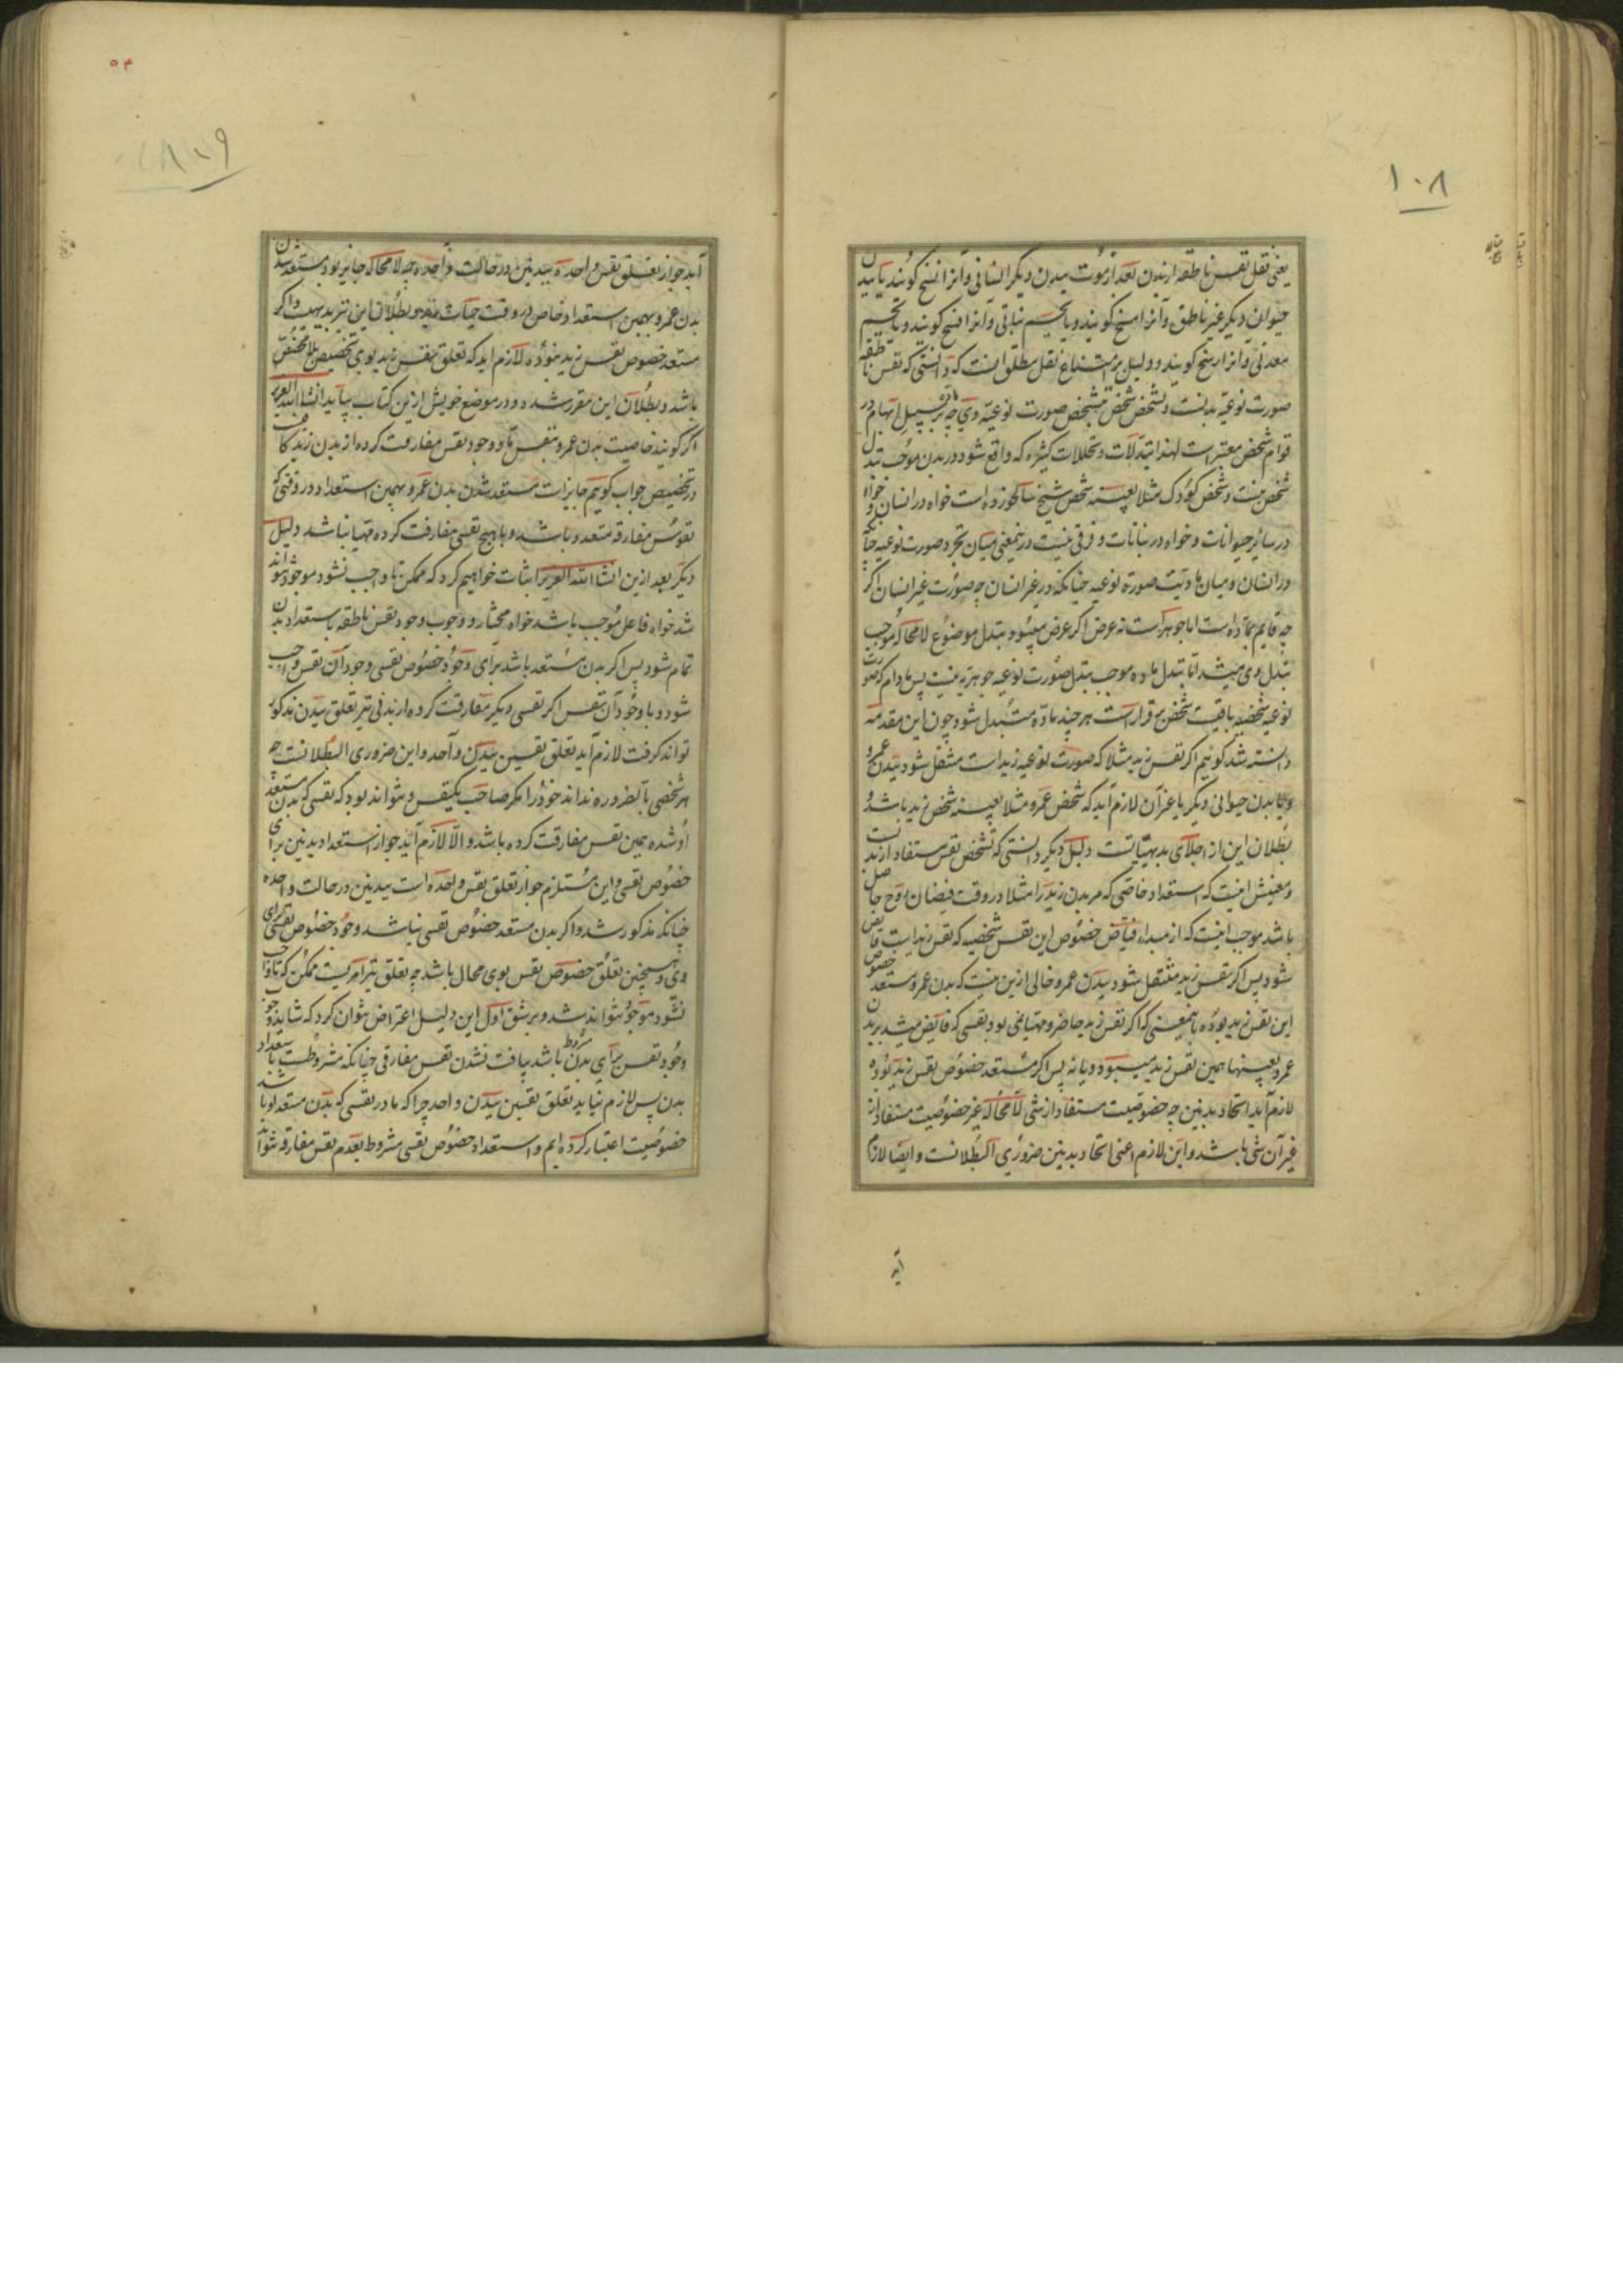 ۱۰۸
یعنی نقل نفس ناطقه از بدن بعد از موت ببدن دیگر انسانی و آنرا نسخ گویند یا ببدن
حیوان دیگر غیر ناطق و آنرا مسخ گویند و یا بجسم نباتی و آنرا فسخ گویند و یا بجسم
معدنی و آنرا رسخ گویند و دلیل بر امتناع نقل مطلق اینست که دانستی که نفس ناطقه
صورت نوعیه بدنست و تشخص شخص بتشخص صورت نوعیه وی چه بر سبیل ابهام در
قوام شخص معتبر است لهذا تبدلات و تحللات کثیره که واقع شود در بدن موجب تبدل
شخص نیست و شخص کودک مثلا بعینه شخص شیخ سالخورده است خواه در انسان و خواه
در سائر حیوانات و خواه در نباتات و فرقی نیست درینمعنی میان تجرد صورت نوعیه چنانکه
در انسان و میان مادیت صورة نوعیه چنانکه در غیر انسان چه صورت غیر انسان اگر
چه قایم بماده است اما جوهر است نه عرض اگر عرض میبود بتبدل موضوع لامحاله موجب
تبدل وی میشد اما تبدل ماده موجب تبدل صورت نوعیه جوهریه نیست پس مادام که صورت
نوعیه شخصیه باقیست شخص برقرار است هر چند ماده متبدل شود چون این مقدمه
دانسته شد گوئیم اگر نفس زید مثلا که صورت نوعیه زید است منتقل شود ببدن عمرو
و یا بدن حیوانی دیگر یا غیر آن لازم آید که شخص عمرو مثلا بعینه شخص زید باشد و
بطلان این از اجلای بدیهیاتست دلیل دیگر دانستی که تشخص نفس مستفاد از بدنست
و معنیش اینست که استعداد خاصی که مر بدن زید را مثلا در وقت فیضان روح حاصل
باشد موجب اینست که از مبداء فیاض خصوص این نفس شخصیه که نفس زید است فایض
شود پس اگر نفس زید منتقل شود ببدن عمرو خالی ازین نیست که بدن عمرو مستعد خصوص
این نفس زید بوده باینمعنی که اگر نفس زید حاضر و مهیا نمی بود نفسی که فایض میشد بر بدن
عمرو بعینها همین نفس زید میبود و یا نه پس اگر مستعد خصوص نفس زید بوده
لازم آید اتحاد بدنین چه خصوصیت مستفاد از شی لامحاله غیر خصوصیت مستفاد از
غیر آن شی باشد و این لازم اعنی اتحاد بدنین ضروری البطلانست و ایضا لازم
آید
۵۴
آید جواز تعلق نفس واحده ببدنین در حالت واحده چه لامحاله جایز بود مستعد شدن
بدن عمرو بهمین استعداد خاص در وقت حیات زید و بطلان این نیز بدیهیست و اگر
مستعد خصوص نفس زید نبوده لازم آید که تعلق نفس زید بوی تخصیص بلا مخصص
باشد و بطلان این مقرر شده و در موضع خویش ازین کتاب بیاید انشاء الله العزیز
اگر گویند خاصیت بدن عمرو بنفس ما و وجود نفس مفارقت کرده از بدن زید کافیست
در تخصیص جواب گوئیم جایز است مستعد شدن بدن عمرو بهمین استعداد در وقتی که
نفوس مفارقه متعدد باشد و یا هیچ نفسی مفارقت کرده مهیا نباشد دلیل
دیگر بعد ازین انشاء الله العزیز اثبات خواهیم کرد که ممکن تا واجب نشود موجود نتواند
شد خواه فاعل موجب باشد خواه مختار و وجوب وجود نفس ناطقه باستعداد بدن
تمام شود پس اگر بدن مستعد باشد برای وجود خصوص نفسی وجود آن نفس واجب
شود و با وجود آن نفس اگر نفسی دیگر مفارقت کرده از بدنی نیز تعلق ببدن مذکور
تواند گرفت لازم آید تعلق نفسین ببدن واحد و این ضروری البطلانست چه
هر شخصی بالضروره نداند خود را مگر صاحب یکنفس و نتواند بود که نفسی که بدن مستعد
او شده همین نفس مفارقت کرده باشد و الا لازم آید جواز استعداد بدنین برای
خصوص نفسی و این مستلزم جواز تعلق نفس واحده است ببدنین در حالت واحده
چنانکه مذکور شد و اگر بدن مستعد خصوص نفسی نباشد وجود خصوص نفسی برای
وی و همچنین تعلق خصوص نفس بوی محال باشد چه تعلق نیز امریست ممکن که تا واجب
نشود موجود نتواند شد و بر شق اول این دلیل اعتراض توان کرد که شاید وجوب
وجود نفس برای بدن مشروط باشد بیافت نشدن نفس مفارقی چنانکه مشروطست باستعداد
بدن پس لازم نیاید تعلق نفسین ببدن واحد چرا که ما در نفسی که بدن مستعد او باشد
خصوصیت اعتبار کرده ایم و استعداد خصوص نفسی مشروط بعدم نفس مفارقه نتواند